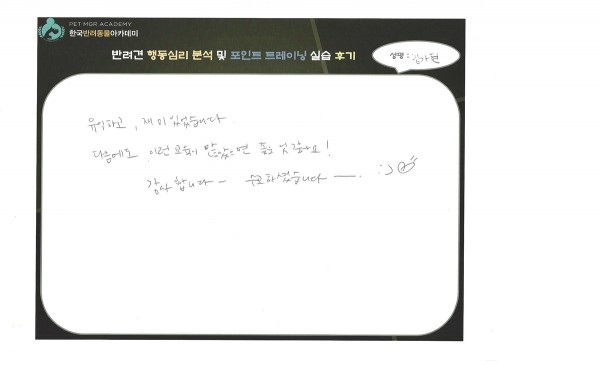 PET MGR ACADEMY
한국반려동물아카데미
반려견 행동심리 분석 및 포인트 트레이닝 실습 후기
성명 : 김가현
유익하고, 재미있었습니다.
다음에도 이런 교육이 많았으면 좋을 것 같아요!
감사합니다~ 수고하셨습니다 —. :)